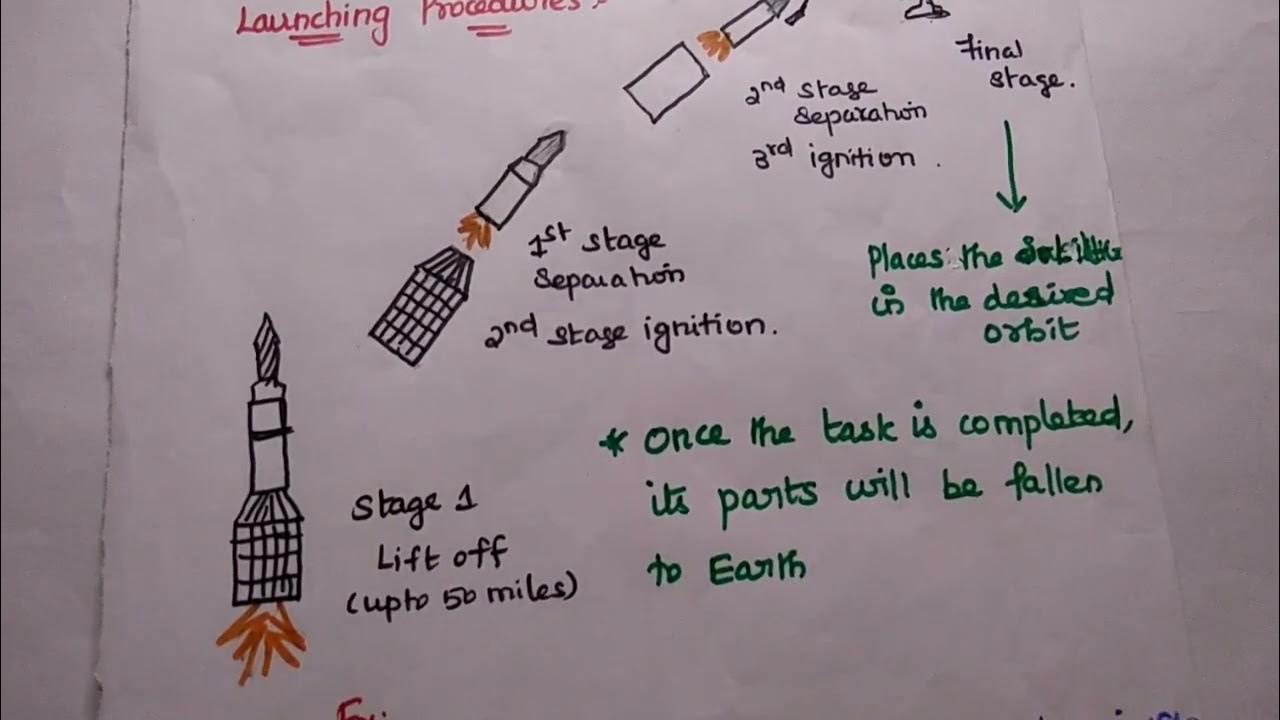 Launching Procedures:
Final
stage.
2nd stage
Separation
3rd ignition.
1st stage
Separation
2nd stage ignition.
Places the Satellite
in the desired
orbit
* Once the task is completed,
its parts will be fallen
to Earth
Stage 1
Lift off
(upto 50 miles)